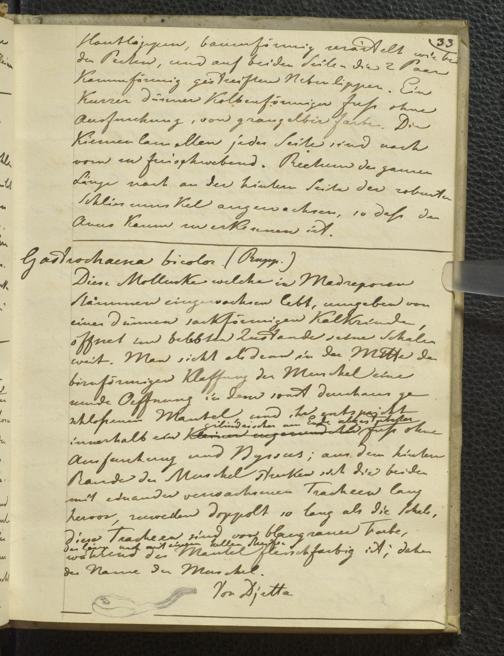 33
Hautlappen, baumförmig verästelt wie bei
den Pecten, und auf beiden Seiten die 2 Paar
kammförmig gestreiften Nebenlippen. Ein
kurzer dünner kolbenförmiger Fuss ohne
Ausfurchung, von graugelber Farbe. Die
Kiemenlamellen jeder Seite sind nach
vorn en freischwebend. Rectum der ganzen
Länge nach an der hintern Seite des robusten
Schliesmuskel angewachsen, so dass der
Anus kaum zu erkennen ist.
Gastrochaena bicolor (Rupp.)
Diese Molluske welche in Madreporen
stämmen eingewachsen lebt, umgeben von
einer dünnen sackförmigen Kalkrinde,
öffnet im belebten Zustande seine Schalen
weit. Man sieht alsdann in der Mitte der
birnförmigen Klaffung der Muschel eine
runde Oeffnung in dem sonst durchaus ge
schlossenen Mantel, und ihr entspricht
cilindrischer am Ende
innerhalb ein Fuss ohne
Ausfurchung und Byssus; aus dem hintern
Rande der Muschel strecken sich die beiden
mit einander verwachsenen Tracheen lang
hervor, zuweilen doppelt so lang als die Schale,
diese Tracheen sind von blaugrauer Farbe,
der Länge nach mit einigen hellen Streifen
während der Mantel fleischfarbig ist; daher
der Name der Muschel.
Von Djetta